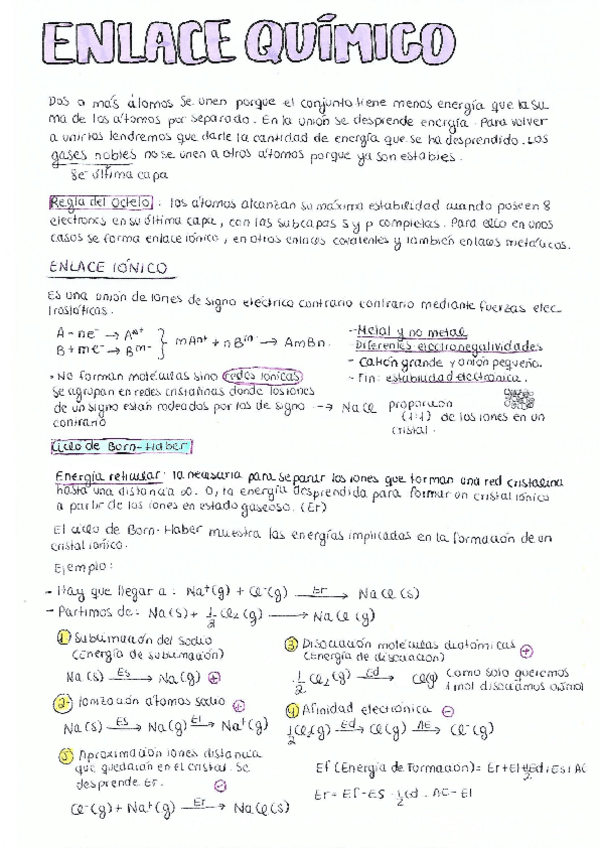 ENLACE QUÍMICO
Dos o más átomos se unen porque el conjunto tiene menos energía que la su
ma de los átomos por separado. En la unión se desprende energía. Para volver
a unirlos tendremos que darle la cantidad de energía que se ha desprendido. Los
gases nobles no se unen a otros átomos porque ya son estables.
8e⁻ última capa
Regla del Octeto: los átomos alcanzan su máxima estabilidad cuando poseen 8
electrones en su última capa, con las subcapas s y p completas. Para ello en unos
casos se forma enlace iónico, en otros enlaces covalentes y también enlaces metálicos.
ENLACE IÓNICO
Es una unión de iones de signo eléctrico contrario contrario mediante fuerzas elec-
trostáticas.
A - ne⁻ → Aⁿ⁺
B + me⁻ → Bᵐ⁻ } mAⁿ⁺ + nBᵐ⁻ → AmBn.
- Metal y no metal
- Diferentes electronegatividades
- Catión grande y anión pequeño.
- Fin: estabilidad electrónica.
• No forman moléculas sino redes iónicas
se agrupan en redes cristalinas donde los iones
de un signo están rodeados por los de signo
contrario
--→ NaCl proporción
(1:1) de los iones en un
cristal.
Ciclo de Born-Haber
Energía reticular: la necesaria para separar los iones que forman una red cristalina
hasta una distancia ∞. O, la energía desprendida para formar un cristal iónico
a partir de los iones en estado gaseoso. (Er)
El ciclo de Born-Haber muestra las energías implicadas en la formación de un
cristal iónico.
Ejemplo:
- Hay que llegar a: Na⁺(g) + Cl⁻(g) Er → NaCl(s)
- Partimos de: Na(s) + 1/2 Cl₂(g) → NaCl(g)
1 Sublimación del sodio
(Energía de sublimación)
Na(s) Es → Na(g) +
2 Ionización átomos sodio +
Na(s) Es → Na(g) EI → Na⁺(g)
3 Disociación moléculas diatómicas +
(Energía de disociación)
1/2 Cl₂(g) Ed → Cl(g) Como solo queremos
1 mol disociamos
4 Afinidad electrónica -
1/2 Cl₂(g) Ed → Cl(g) AE → Cl⁻(g)
5 Aproximación iones distancia
que quedarían en el cristal. Se
desprende Er. -
Cl⁻(g) + Na⁺(g) Er → NaCl(s)
Ef (Energía de Formación) = Er+EI+½Ed+Es+AE
Er = Ef - Es - 1/2 Ed - AE - EI